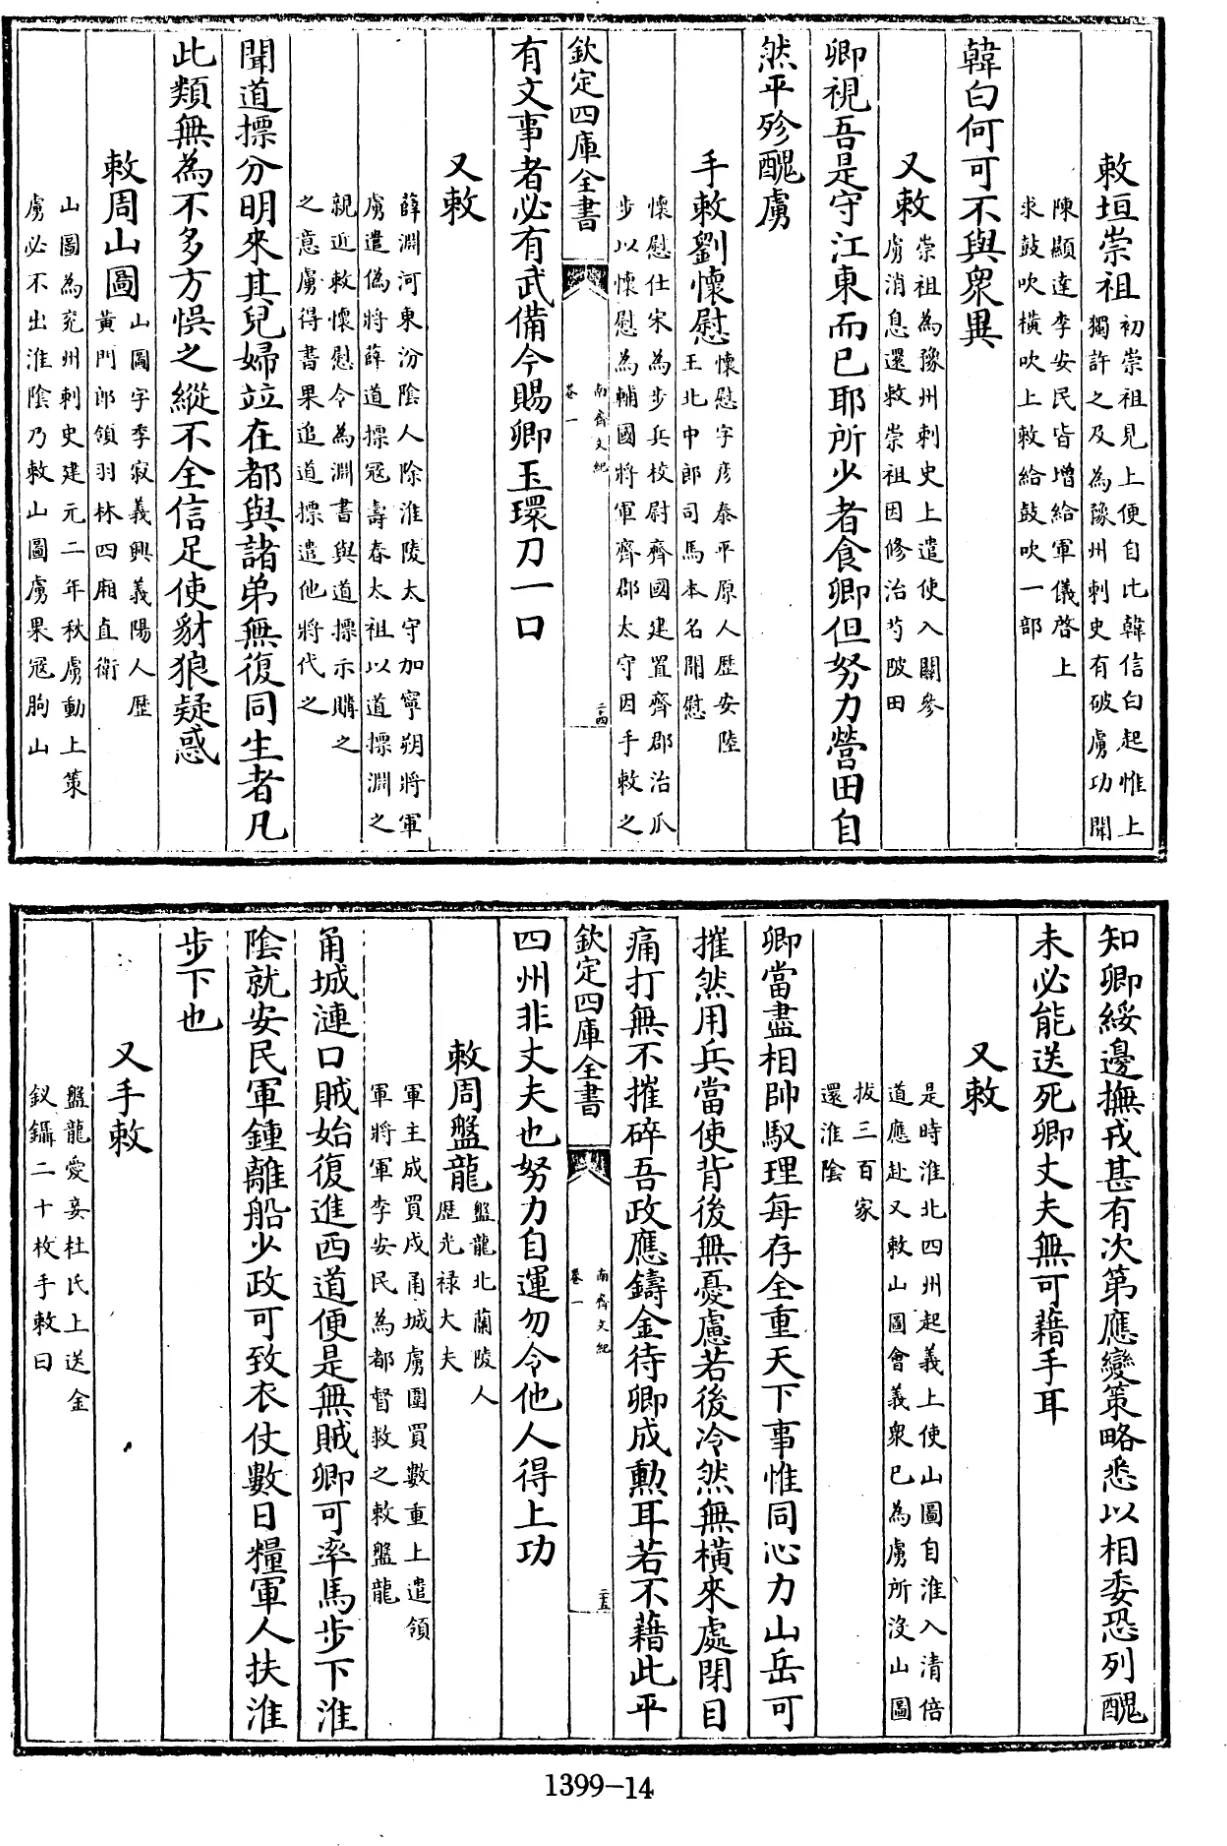 敕垣崇祖初崇祖見上便自比韓信白起惟上
獨許之及為豫州刺史有破虜功聞
陳顯達李安民皆增給軍儀啓上
求鼓吹橫吹上敕給鼓吹一部
韓白何可不與衆異
又敕崇祖為豫州刺史上遣使入關參
虜消息還敕崇祖因修治芍陂田
卿視吾是守江東而已耶所少者食卿但努力營田自
然平殄醜虜
手敕劉懷慰懷慰字彥泰平原人歴安陸
王北中郎司馬本名聞慰
懷慰仕宋為步兵校尉齊國建置齊郡治爪
步以懷慰為輔國將軍齊郡太守因手敕之
欽定四庫全書
南齊文紀
卷一
二十四
有文事者必有武備今賜卿玉環刀一口
又敕
薛淵河東汾陰人除淮陵太守加寧朔將軍
虜遣偽將薛道摽冦壽春太祖以道摽淵之
親近敕懷慰令為淵書與道摽示購之
之意虜得書果追道摽遣他將代之
聞道摽分明來其兒婦竝在都與諸弟無復同生者凡
此類無為不多方悞之縱不全信足使豺狼疑惑
敕周山圖山圖字季寂義興義陽人歴
黃門郎領羽林四廂直衛
山圖為兗州刺史建元二年秋虜動上策
虜必不出淮陰乃敕山圖虜果冦朐山
知卿綏邊撫戎甚有次第應變策略悉以相委恐列醜
未必能送死卿丈夫無可藉手耳
又敕
是時淮北四州起義上使山圖自淮入清倍
道應赴又敕山圖會義衆已為虜所沒山圖
拔三百家
還淮陰
卿當盡相帥馭理每存全重天下事惟同心力山岳可
摧然用兵當使背後無憂慮若後冷然無橫來處閉目
痛打無不摧碎吾政應鑄金待卿成勲耳若不藉此平
欽定四庫全書
南齊文紀
卷一
二十五
四州非丈夫也努力自運勿令他人得上功
敕周盤龍盤龍北蘭陵人
歴光禄大夫
軍主成買戍甬城虜圍買數重上遣領
軍將軍李安民為都督救之敕盤龍
甬城漣口賊始復進西道便是無賊卿可率馬步下淮
陰就安民軍鍾離船少政可致衣仗數日糧軍人扶淮
步下也
又手敕
盤龍愛妾杜氏上送金
釵鑷二十枚手敕曰
1399-14